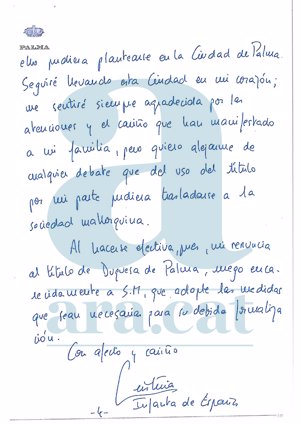 PALMA
ello pudiera plantearse en la Ciudad de Palma.
Seguiré llevando esta Ciudad en mi corazón;
me sentiré siempre agradecida por las
atenciones y el cariño que han manifestado
a mi familia, pero quiero alejarme de
cualquier debate que del uso del título
por mi parte pudiera trasladarse a la
sociedad mallorquina.
Al hacerse efectiva, pues, mi renuncia
al título de Duquesa de Palma, ruego enca-
recidamente a S.M. que adopte las medidas
que sean necesarias para su debida formaliza
ción.
Con afecto y cariño
Cristina
Infanta de España
-4-
a
ara.cat